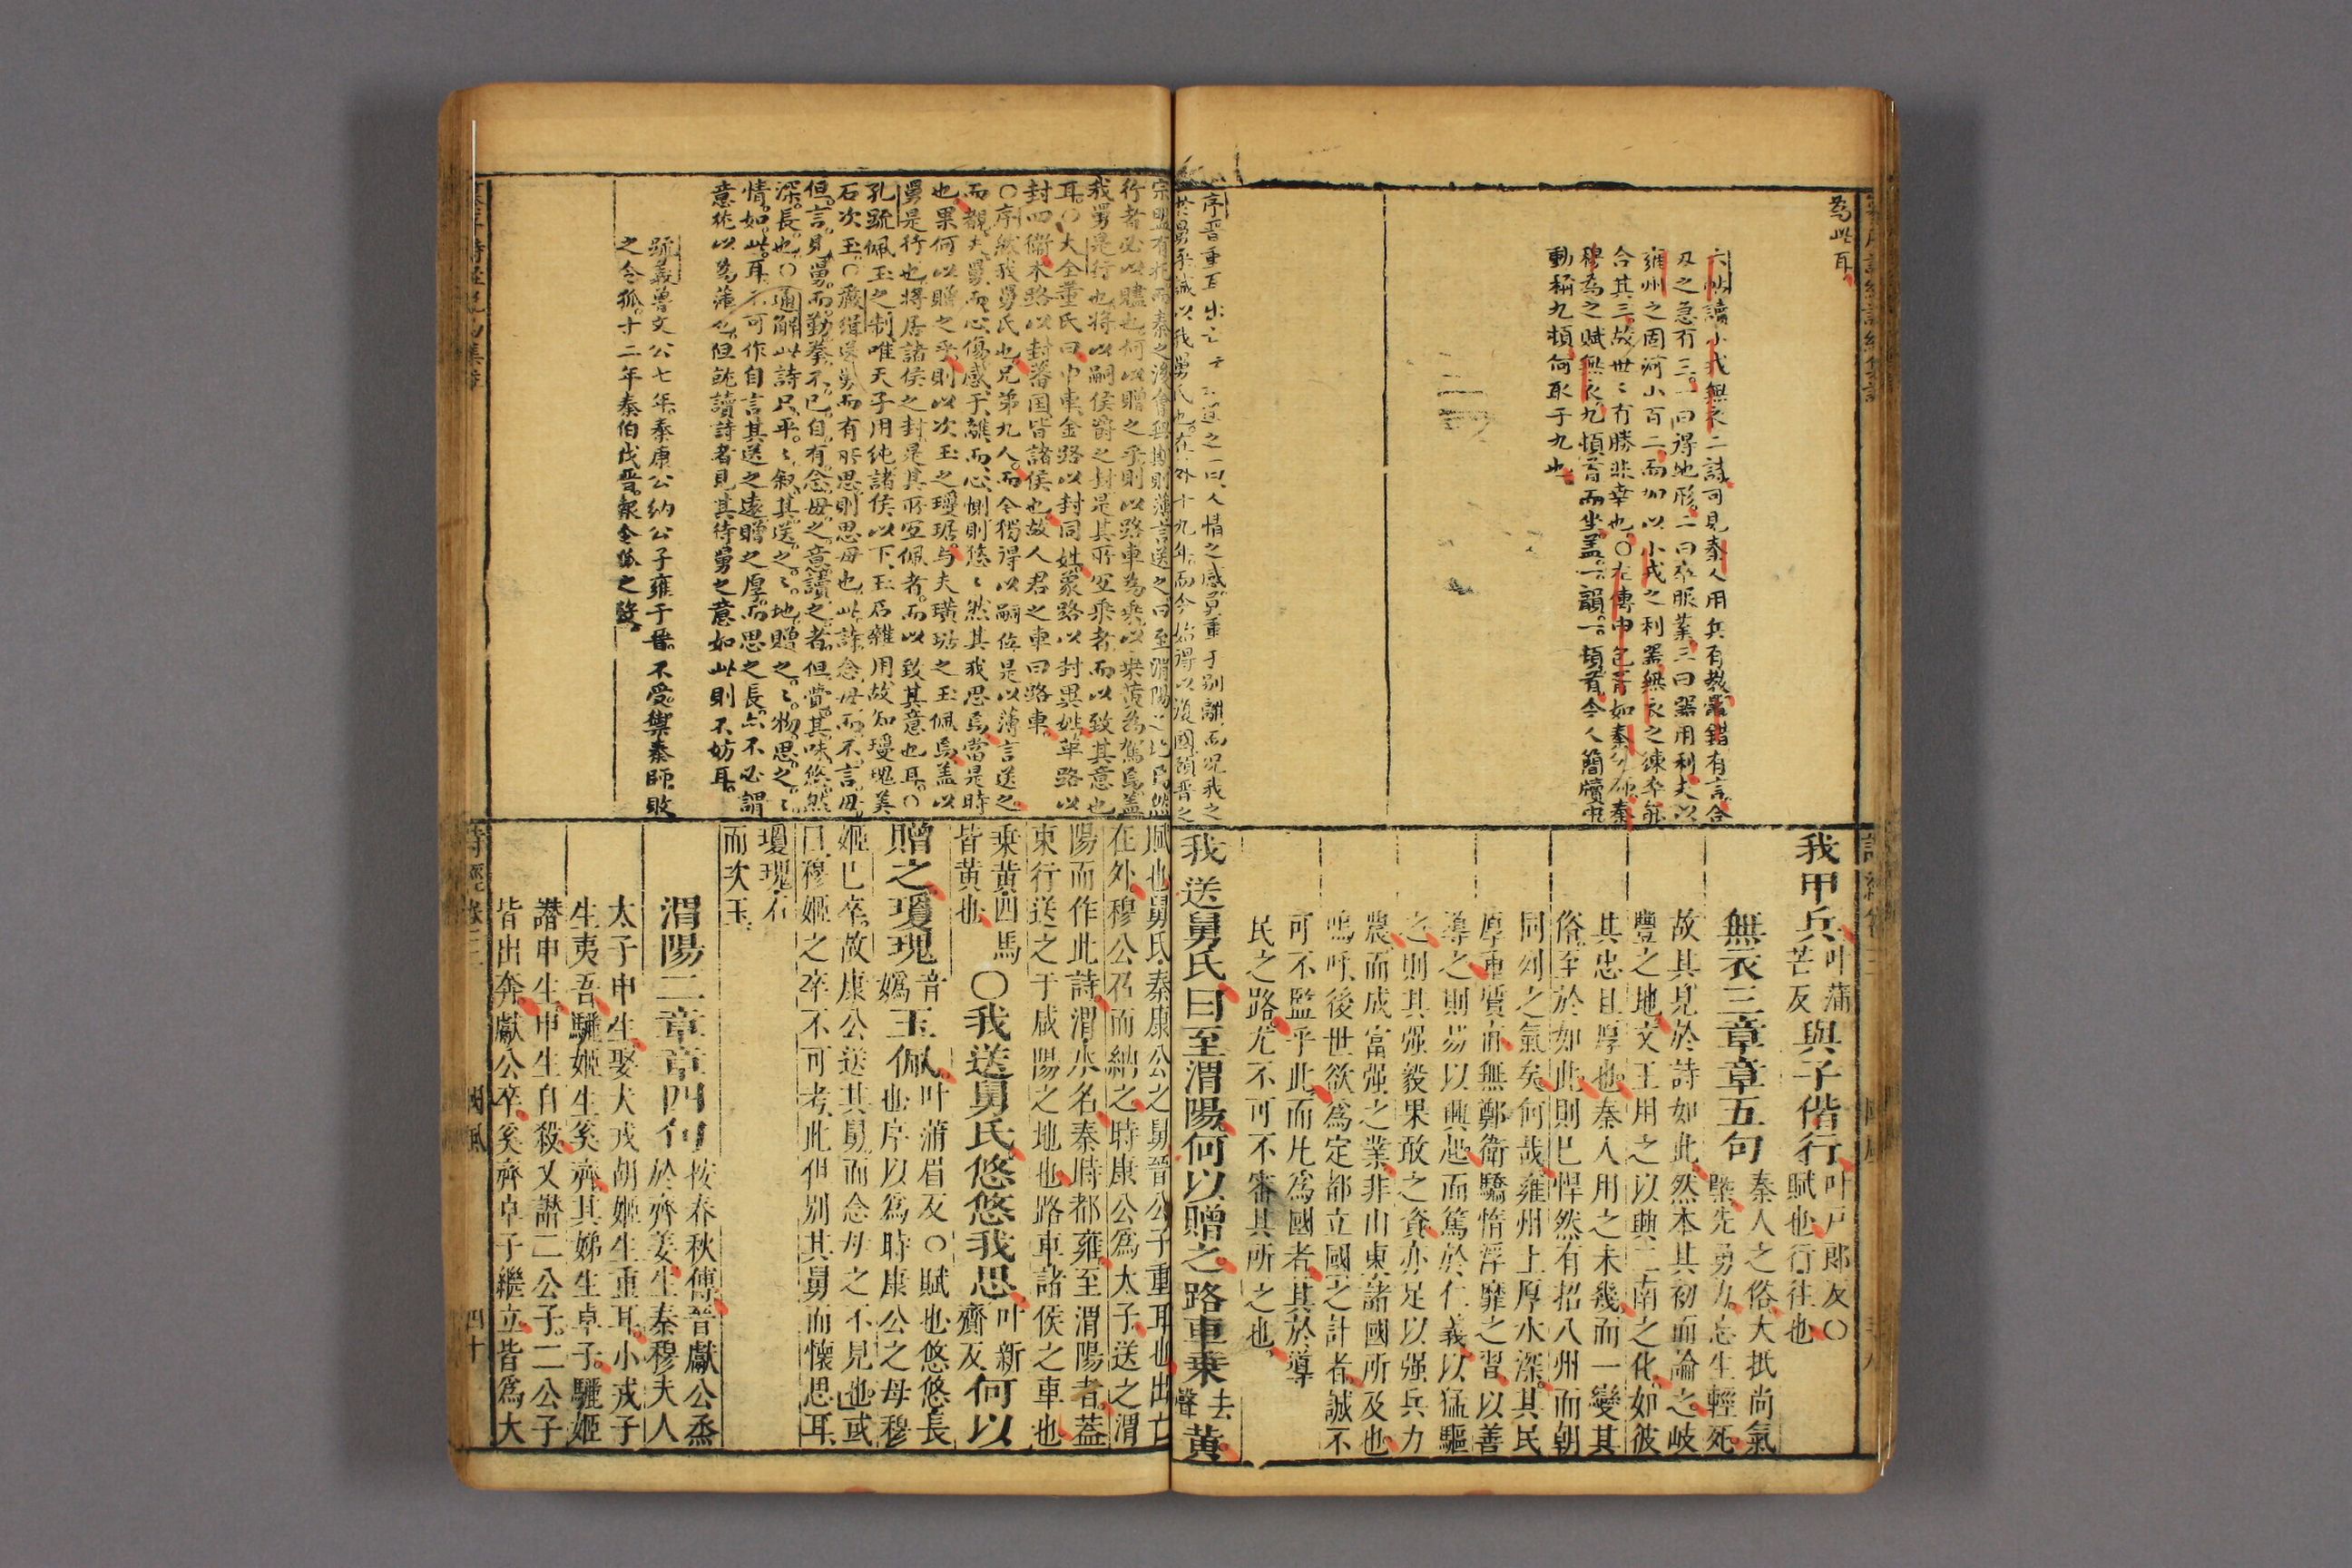 為此耳
六帖讀小戎無衣二詩可見秦人用兵有教鼂錯有言合
刃之急有三一曰得地形二曰卒服業三曰器用利夫以
雍州之固河山百二而加以小戎之利器無衣之練卒能
合其三故世〻有勝非幸也○左傳申包胥如秦乞師秦
穆為之賦無衣九頓首而坐蓋一韻一頓首今人簡牘中
動稱九頓何取于九也
我甲兵叶蒲芒反與子偕行叶戶郎反○賦也行往也
無衣三章章五句秦人之俗大抵尚氣槩先勇力忘生輕死
故其見於詩如此然本其初而論之岐
豐之地文王用之以興二南之化如彼
其忠且厚也秦人用之未幾而一變其
俗至於如此則已悍然有招八州而朝
同列之氣矣何哉雍州土厚水深其民
厚重質直無鄭衛驕惰浮靡之習以善
導之則易以興起而篤於仁義以猛驅
之則其强毅果敢之資亦足以强兵力
農而成富强之業非山東諸國所及也
嗚呼後世欲為定都立國之計者誠不
可不監乎此而凡為國者其於導
民之路尤不可不審其所之也
我送舅氏曰至渭陽何以贈之路車乗去聲黄
我舅是行也將以嗣侯爵之封是其所宜乘者而以致其意也
耳○大全董氏曰巾車金路以封同姓象路以封異姓革路以
封四衛木路以封蕃国皆諸侯也故人君之車曰路車
○序然我舅氏也兄弟九人而今獨得以嗣位是以薄言送之
也果何以贈之乎則以次玉之瓊琚与夫璜珩之玉佩焉盖以
舅是行也將居諸侯之封是其所宜佩者而以致其意也耳○
孔䟽佩玉之制唯天子用純諸侯以下玉石雜用故知瓊瑰美
石次玉○嚴緝送舅而有所思則思母也此詩念母而不言母
但言見舅而勤拳不已自有念母之意讀之者但覺其味悠然
深長也○通解此詩只平〻叙其送之〻地贈之〻物思之〻
情如此耳不可作自言其送之遠贈之厚而思之長亦不必謂
意徒以為薄也但就讀詩者見其待舅之意如此則不妨耳
䟽義魯文公七年秦康公納公子雍于晋不受禦秦師敗
之令狐十二年秦伯伐晋報令狐之役
賦也舅氏秦康公之舅晉公子重耳也出亡
在外穆公召而納之時康公為太子送之渭
陽而作此詩渭水名秦時都雍至渭陽者蓋
東行送之于咸陽之地也路車諸侯之車也
乗黄四馬皆黄也○我送舅氏悠悠我思叶新齎反何以
贈之瓊瑰音媯玉佩叶蒲眉反○賦也悠悠長也序以為時康公之母穆
姬已卒故康公送其舅而念母之不見也或
曰穆姬之卒不可考此但别其舅而懷思耳
瓊瑰石
而次玉
渭陽二章章四句按春秋傳晉獻公烝於齊姜生秦穆夫人
太子申生娶犬戎胡姬生重耳小戎子
生夷吾驪姬生奚齊其娣生卓子驪姬
譖申生申生自殺又譖二公子二公子
皆出奔獻公卒奚齊卓子繼立皆為大
詩經
卷三
國風
四十